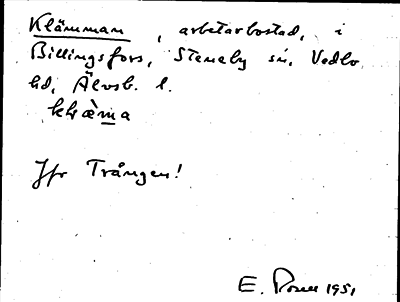 Klämman, arbetarbostad, i
Billingsfors, Steneby sn, Vedbo
hd, Älvsb. l.
Jfr Trången!
E. 1951